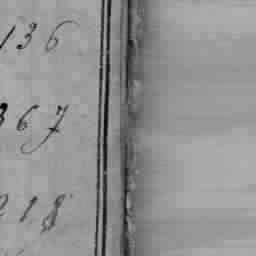 136
367
218